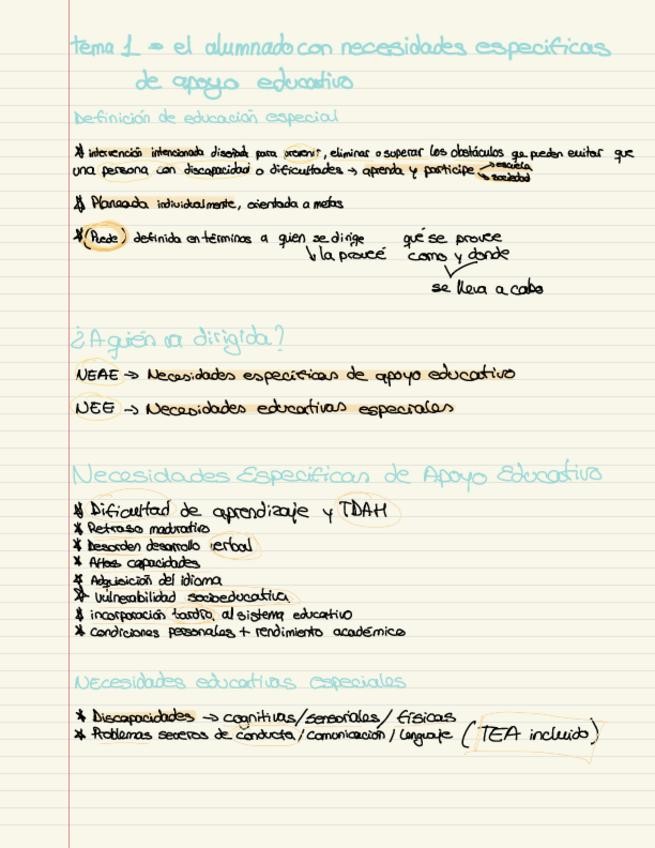 tema 1 → el alumnado con necesidades especificas
de apoyo educativo
Definición de educación especial
* intervención intencionada diseñada para prevenir, eliminar o superar los obstáculos qe pueden evitar que
una persona con discapacidad o dificultades → aprenda y participe escuela
sociedad
* Planeada individualmente, orientada a metas
* (Puede) definida en términos a quien se dirige qué se provee
la proveé como y donde
se lleva a cabo
¿A quién va dirigida?
NEAE → Necesidades especificas de apoyo educativo
NEE → Necesidades educativas especiales
Necesidades Especificas de Apoyo Educativo
* Dificultad de aprendizaje y TDAH
* Retraso madurativo
* Desorden desarrollo verbal
* Altas capacidades
* Adquisición del idioma
* vulnerabilidad socioeducativa
* incorporación tardía al sistema educativo
* condiciones personales + rendimiento académico
Necesidades educativas especiales
* Discapacidades → cognitivas/sensoriales/físicas
* Problemas severos de conducta/comunicación/lenguaje (TEA incluido)